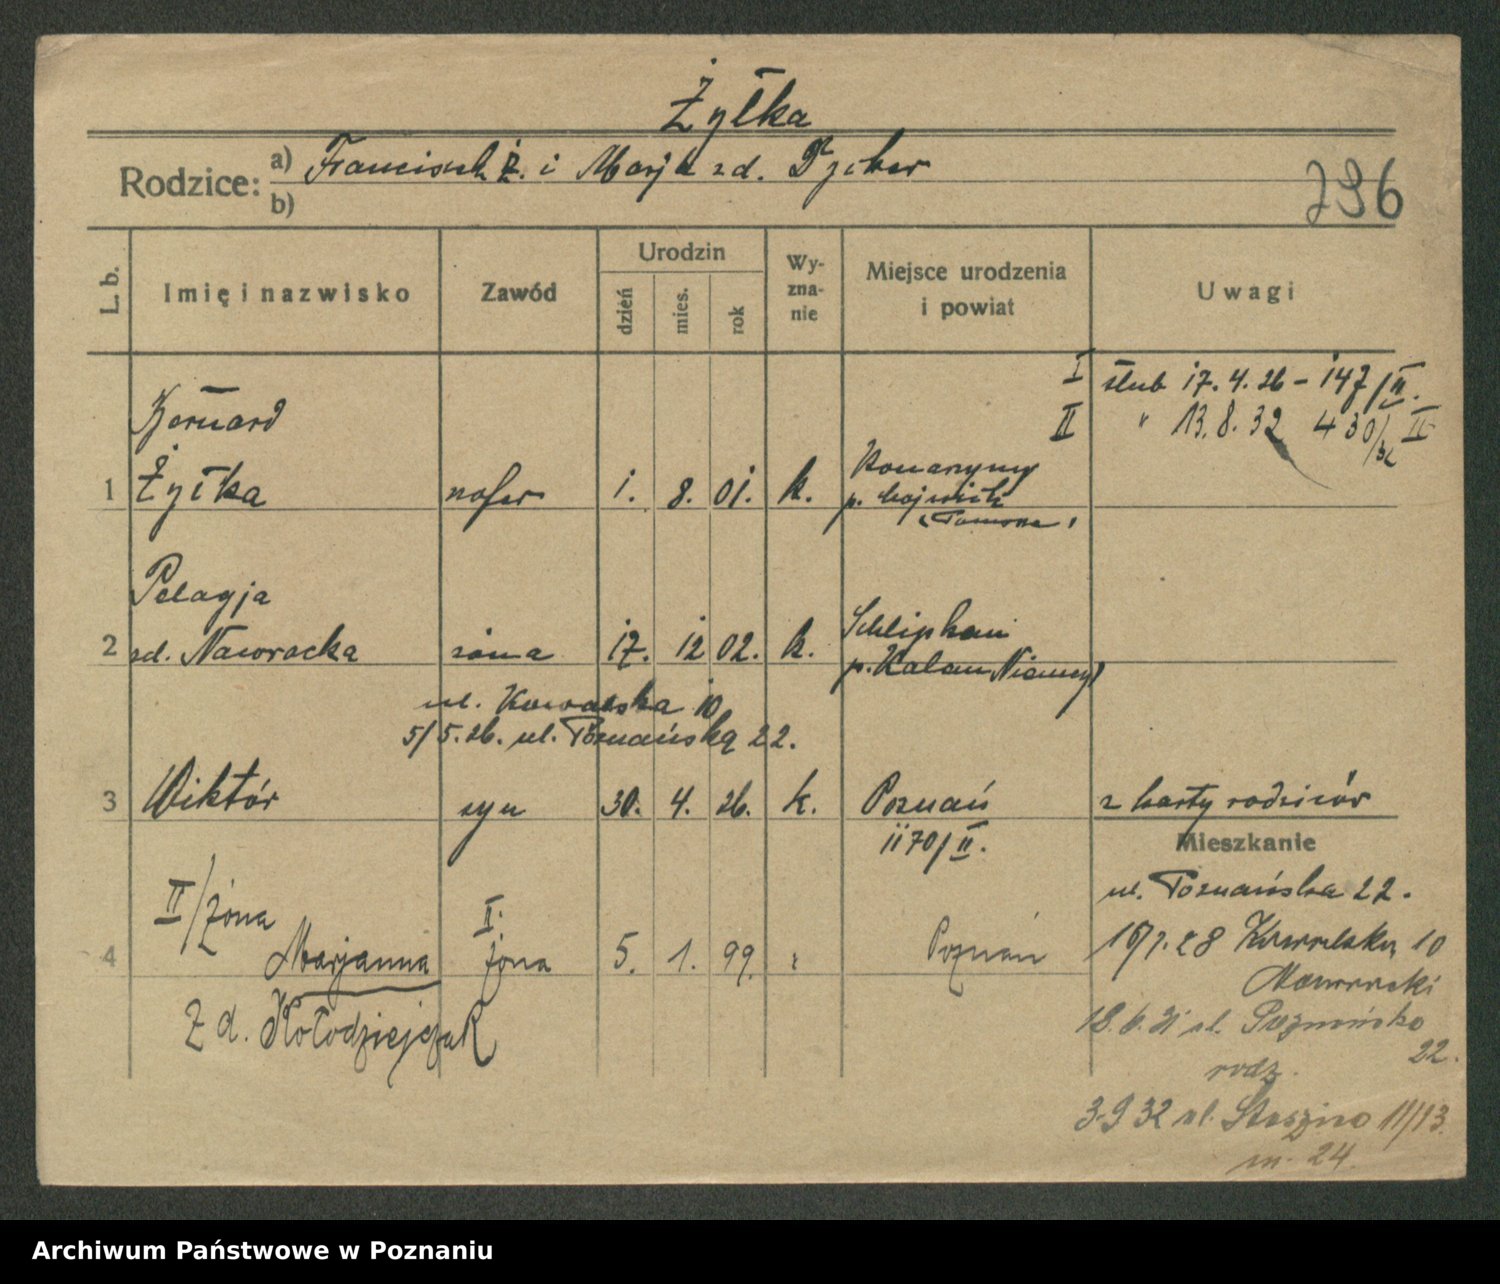 Żyłka
Rodzice: a) Franciszek Ż. i Marja zd.
b)
296
L. b.
Imię i nazwisko
Zawód
Urodzin
dzień
mies.
rok
Wy-
zna-
nie
Miejsce urodzenia
i powiat
Uwagi
I ślub 17. 4. 26 – 147/II.
II " 13. 8. 32 430/32 II
Bernard
1 Żyłka szofer 1. 8. 01. k. Konarzyny
p. Chojnicki
(Pomorze)
Pelagja
2 zd. Nawrocka żona 17. 12 02. k.
p. Kalau Niemcy
ul. Kowalska 10
5/5. 26. ul. Poznańska 22.
3 Wiktór syn 30. 4. 26. k. Poznań z karty rodziców
1170/II.
Mieszkanie
ul. Poznańska 22.
II/żona
4 Marjanna II. żona 5. 1. 99. Poznań
Kowalska 10
Nawrocki
zd. Kołodziejczak
18. 6. 31 ul. Poznańska
22.
rodz.
3. 9 32 ul. Staszica 11/13.
m. 24.
Archiwum Państwowe w Poznaniu